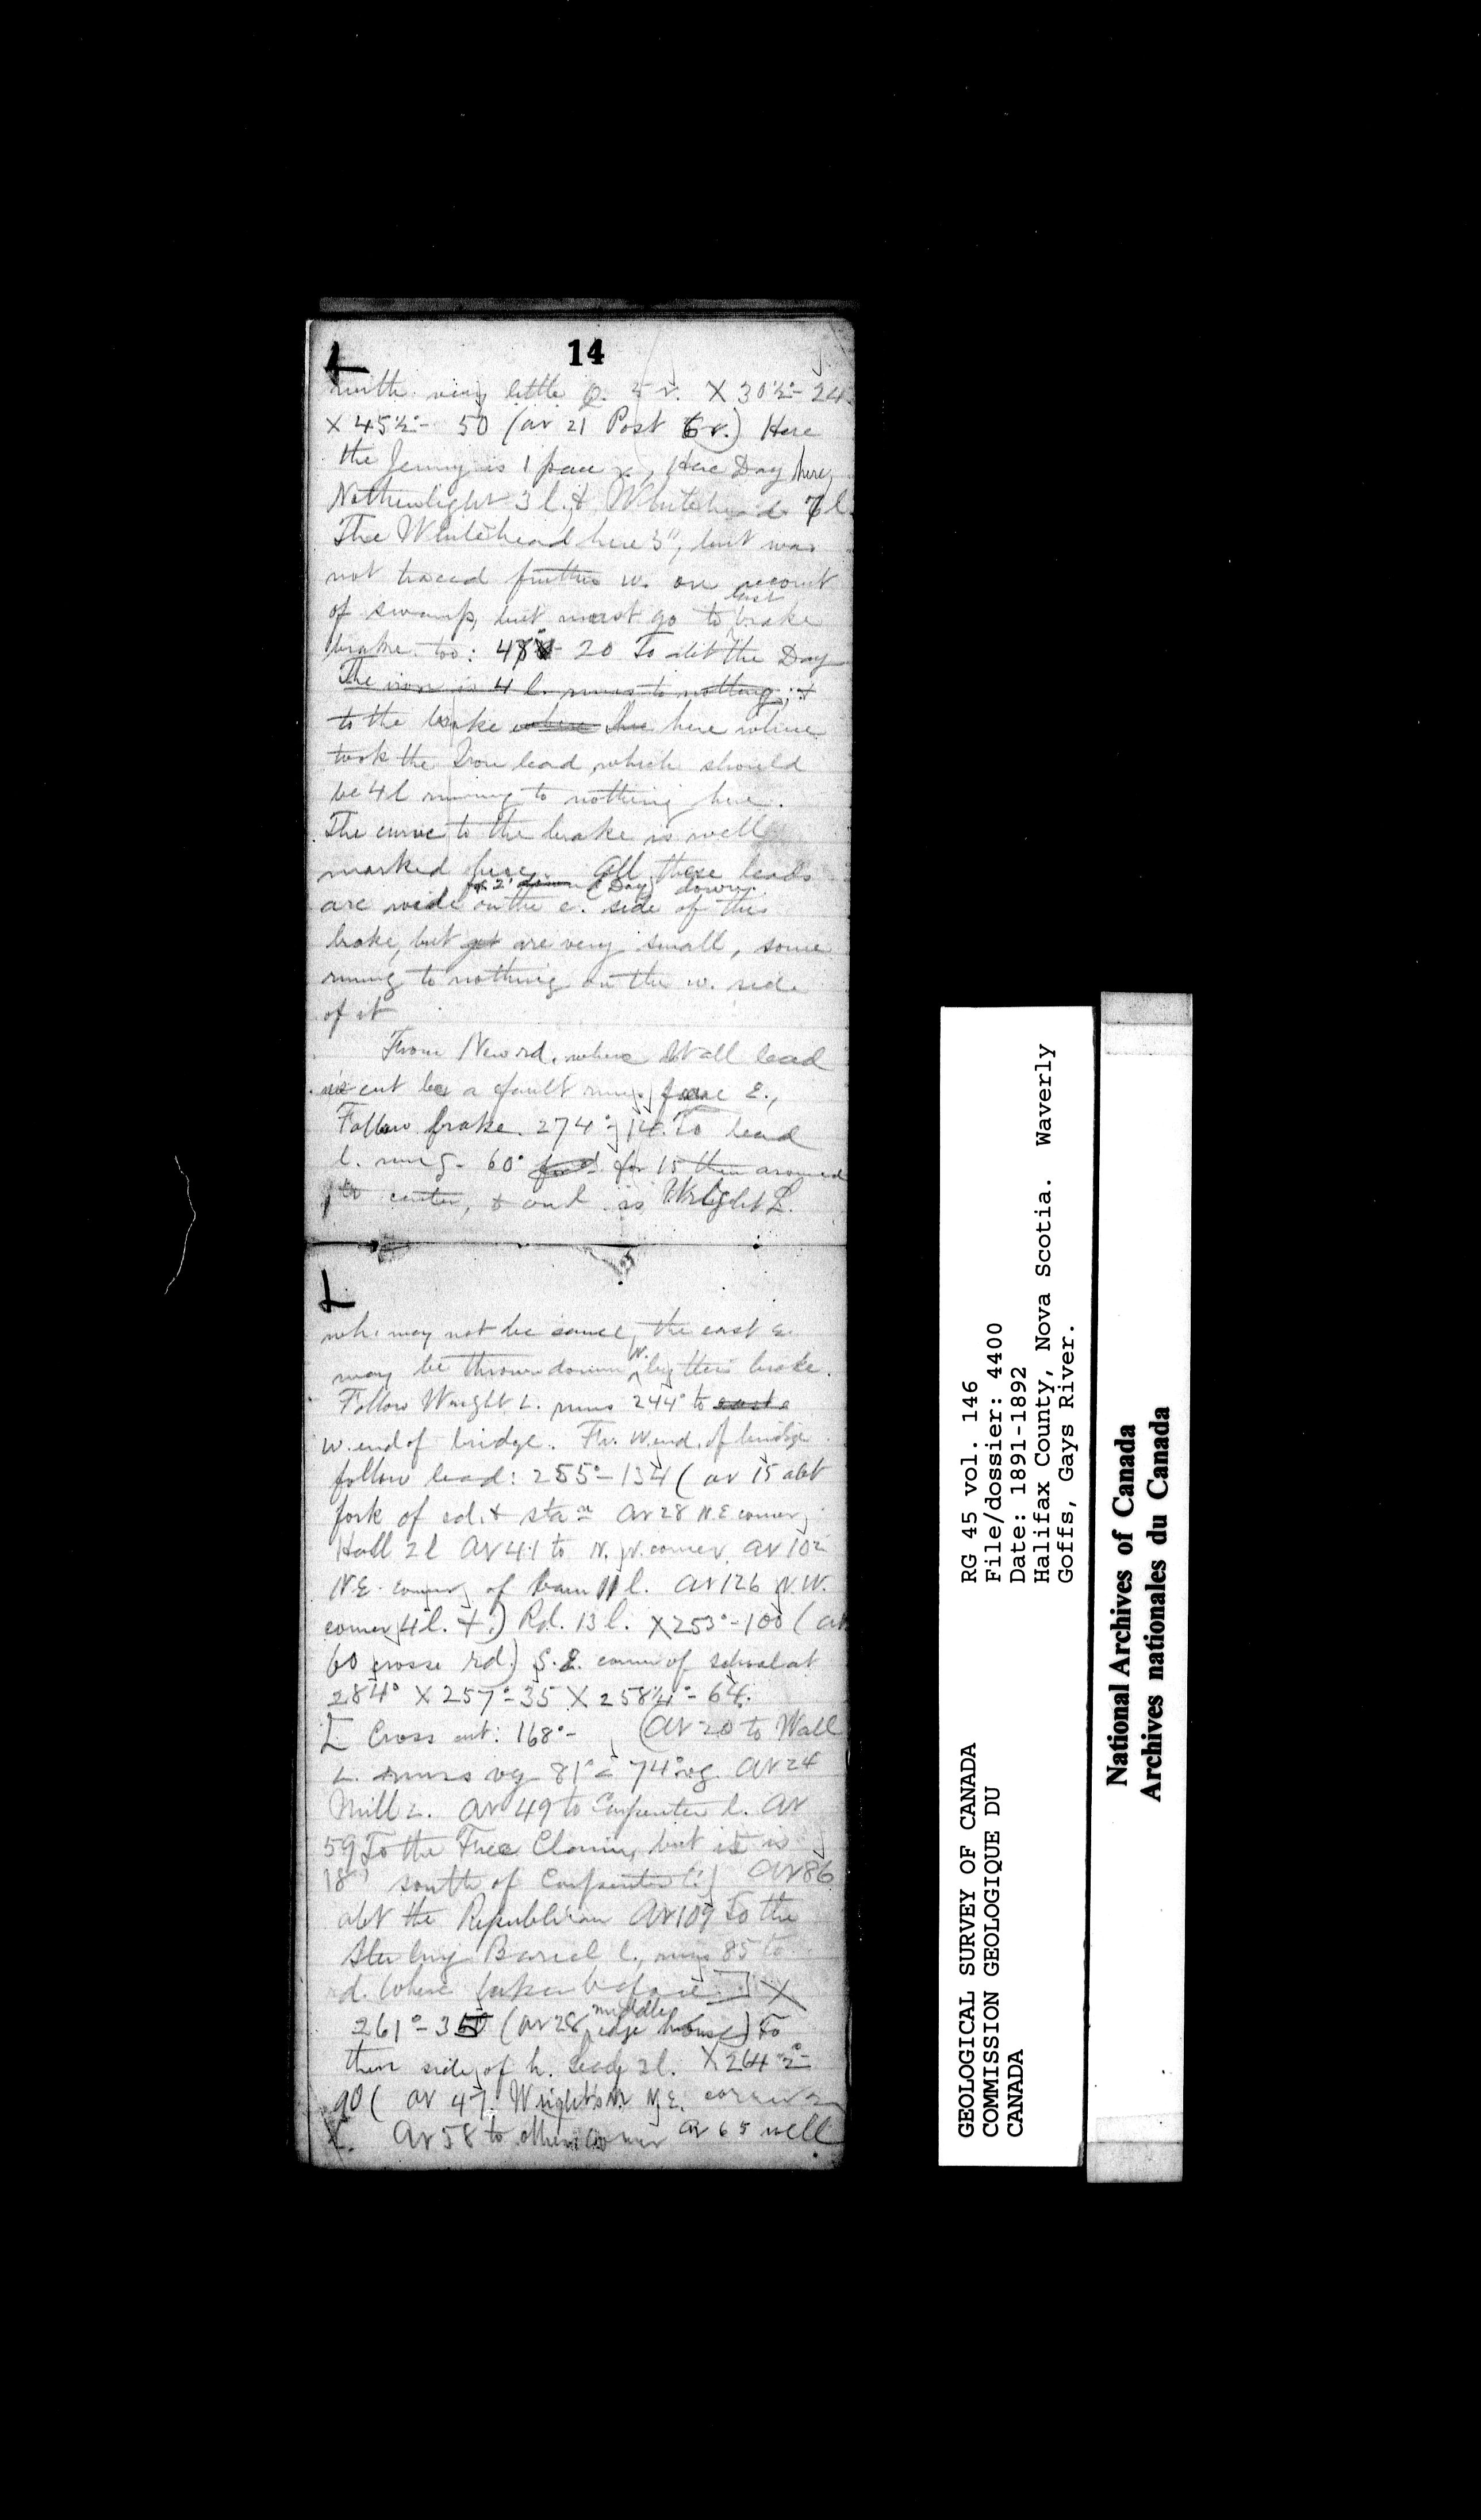 14
north very little Q. 5 r. X 30½°- 24
X 45½°- 50 (ar 21 Post 6 r.) Here
the Jenny is 1 pace r, Here Day here,
3 l. & Whitehead 7 l.
The Whitehead here 3", but was
not traced further w. on account
of swamp, but must go to last brake
brake too: 48°- 20 To abt the Day
The iron is 4 l. runs to nothing, &
to the brake where the here where
took the Iron lead, which should
be 4 l running to nothing here.
The curve to the brake is well
marked here. All these leads
are wide on the e. side of this
brake, but yet are very small, some
runing to nothing on the w. side
of it
From New rd. where Wall lead
is cut by a fault runs E.,
Follow brake. 274°- 14. To lead
l. runs - 60° for 15 then around
to center, & and is Wright L.
wh. may not be same, the east
may be thrown down W. by this brake.
Follow Wright L. runs 244° to
w. end of bridge. Fr. W end of bridge
follow lead: 255°- 134 (ar 15 abt
fork of rd. & stan ar 28 N.E corner
Hall 2 l ar 41 to N.W. corner ar 102
N.E. corner of barn 11 l. ar 126 N.W.
corner 4 l. +) Rd. 13 l. X 253°- 100 (ar
60 crosse rd.) S.E. corner of school at
284° X 257°- 35 X 258¼°- 64.
[ Cross cut: 168°- (ar 20 to Wall
L. runs vg 81° 74° vg ar 24
Mill L. ar 49 to Carpenter l. ar
59 To the Free Claim, but it is
18' south of Carpenter l.) ar 86
abt the Republican ar 109 To the
Barrel l., runs 85 to
rd. where taken before ] X
261°- 350 (ar 28 middle edge house) To
then side of h. lead 2 l. X 264½°-
90 ( ar 47 Wright's N.E. corner
ar 58 to other corner ar 65 well
RG 45 vol. 146
File/dossier: 4400
Date: 1891-1892
Halifax County, Nova Scotia. Waverly
Goffs, Gays River.
GEOLOGICAL SURVEY OF CANADA
COMMISSION GEOLOGIQUE DU
CANADA
National Archives of Canada
Archives nationales du Canada